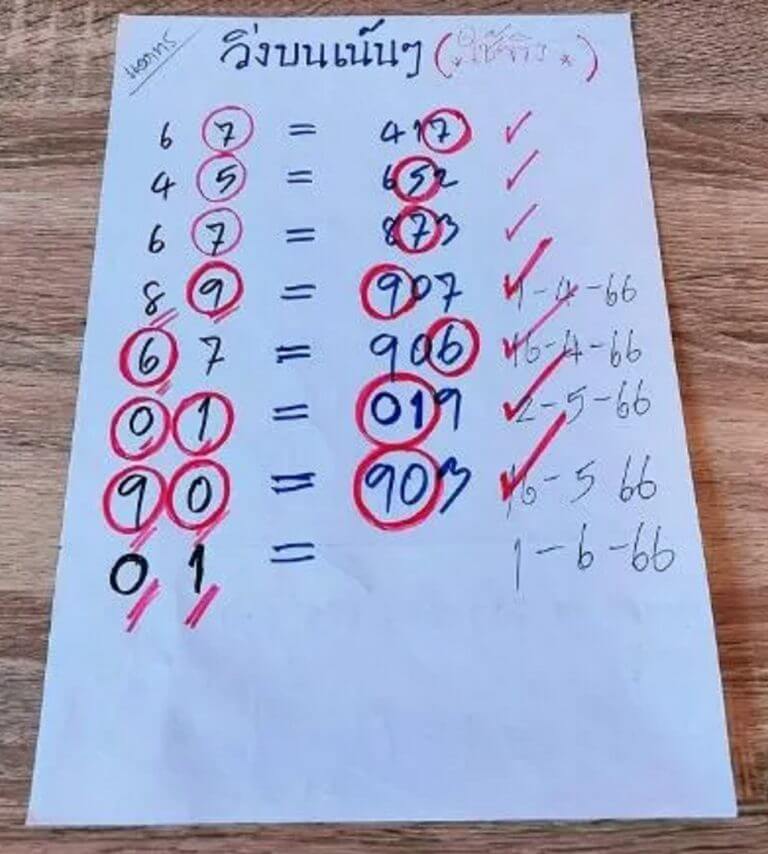 วิ่งบนเน้นๆ
6 7 = 417
4 5 = 652
6 7 = 873
8 9 = 907 1-4-66
6 7 = 906 16-4-66
0 1 = 019 2-5-66
9 0 = 903 16-5 66
0 1 = 1-6-66